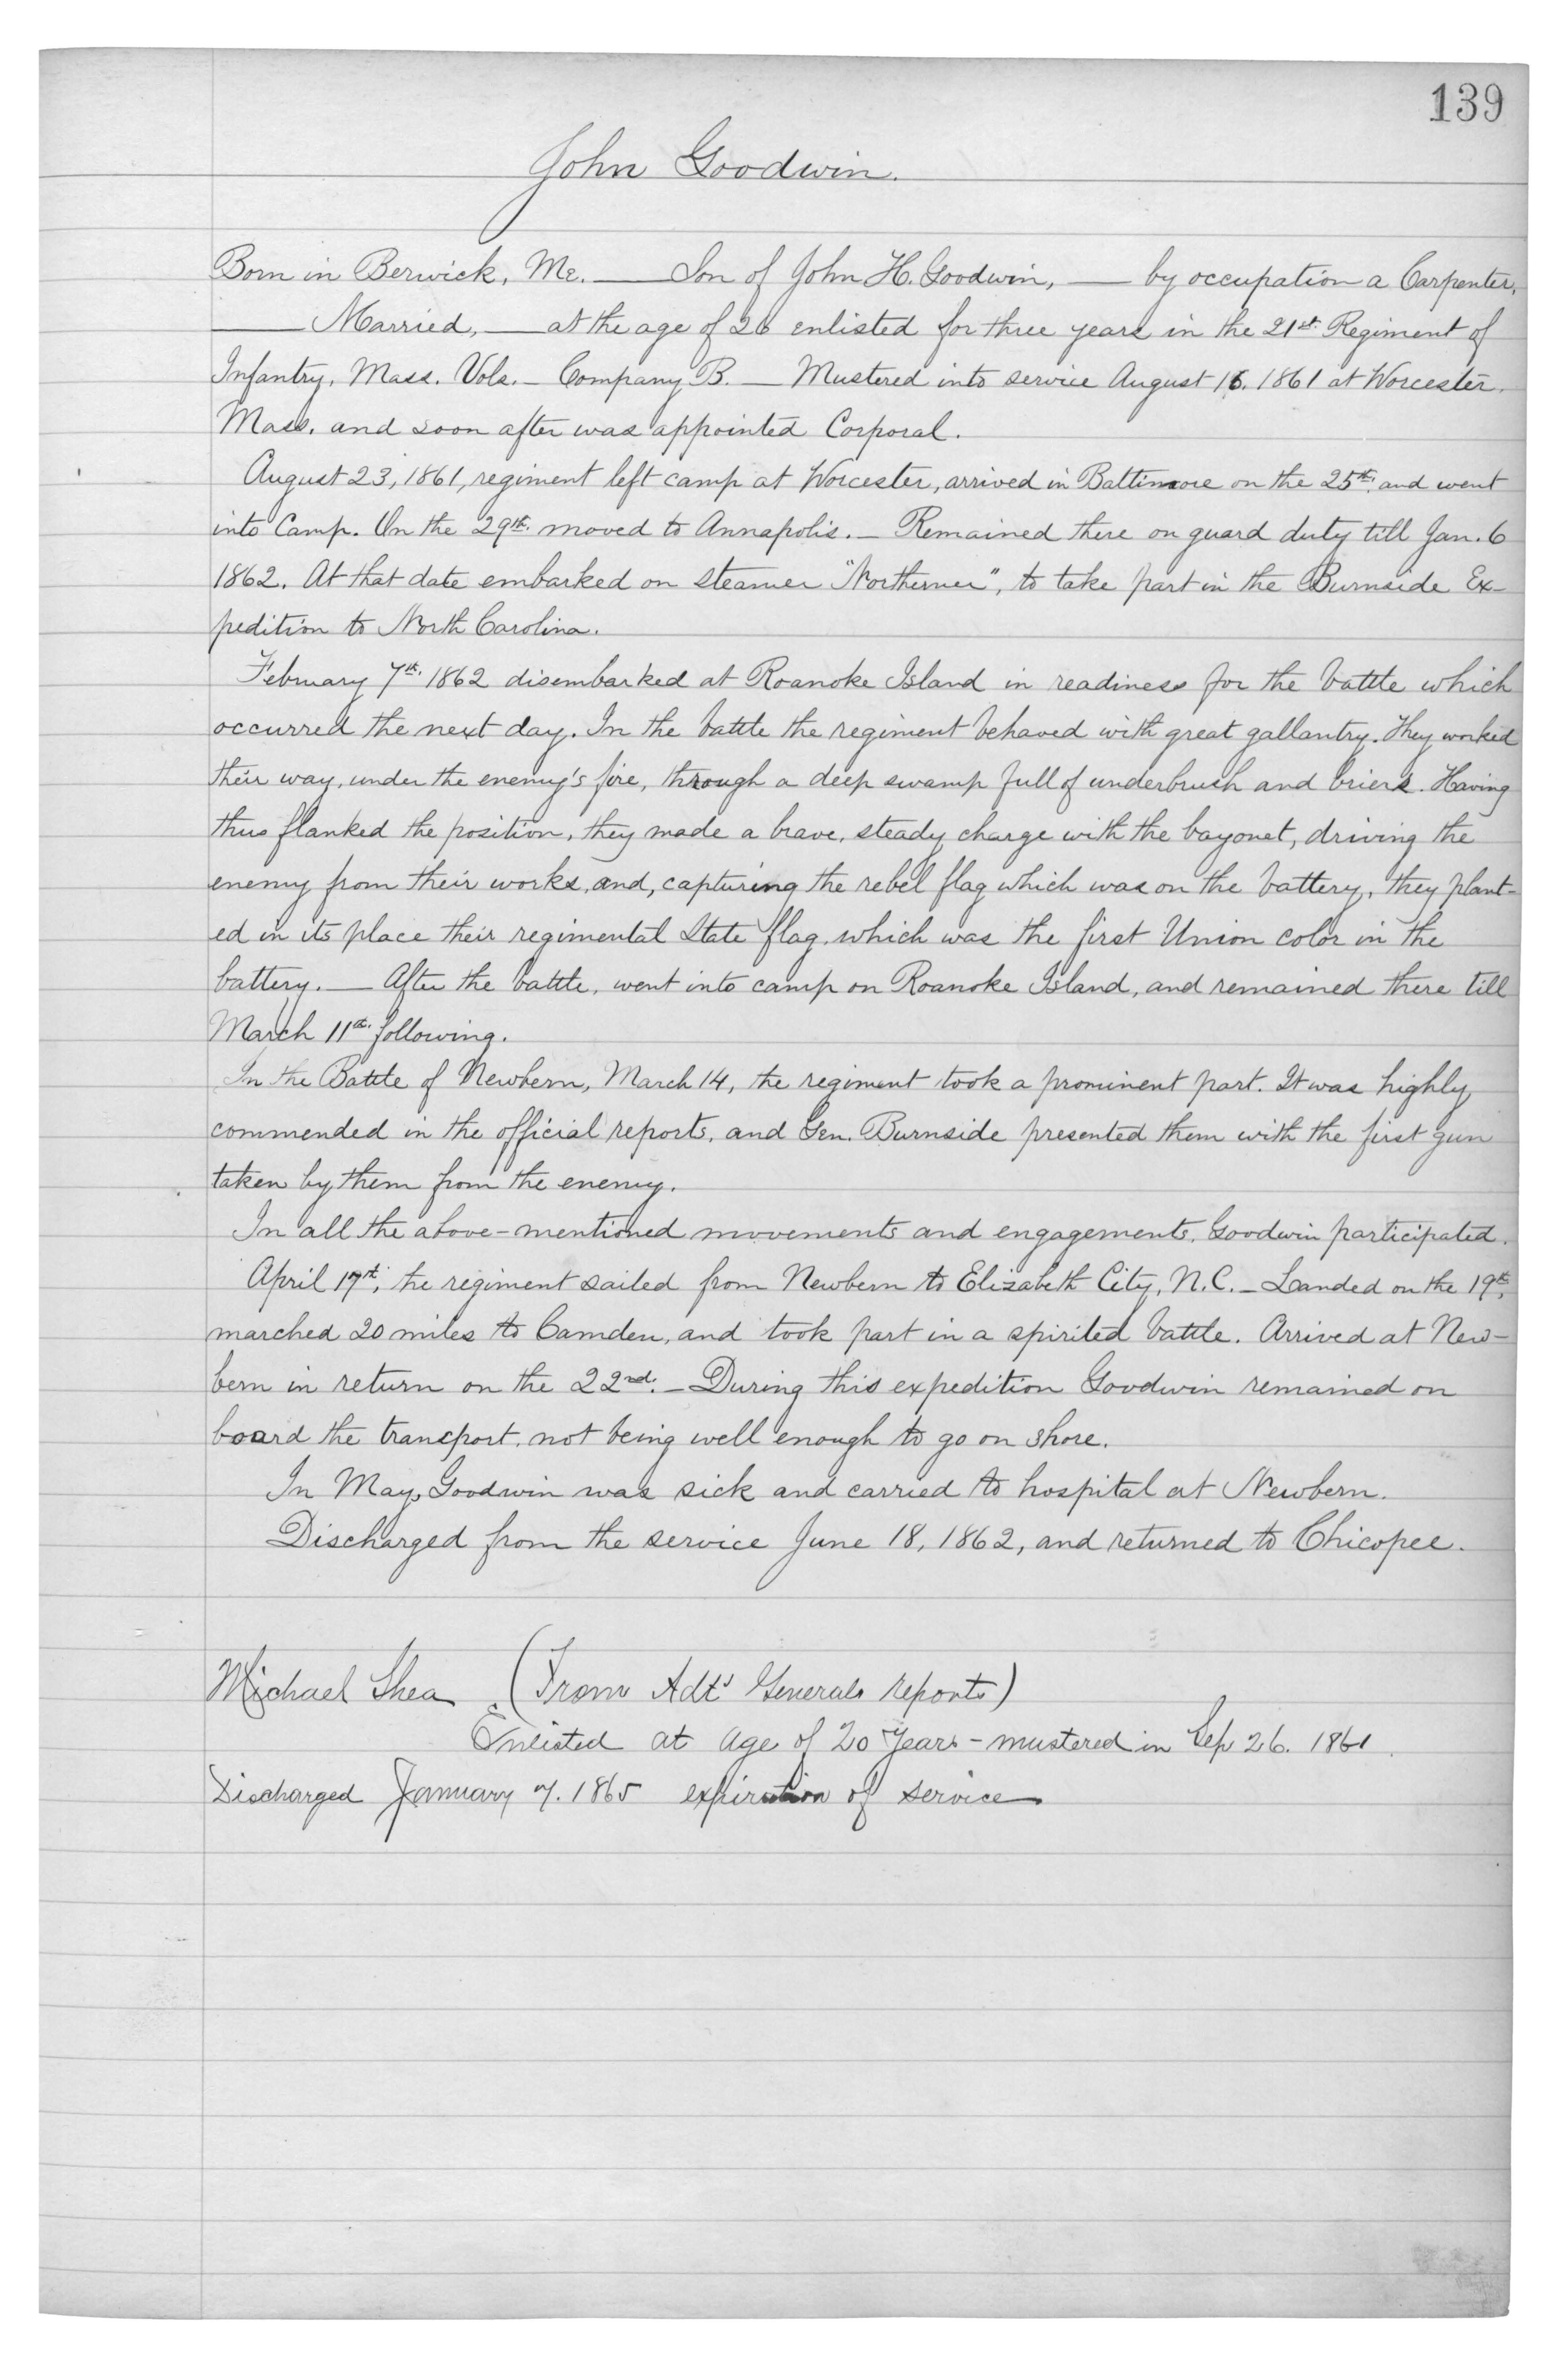 139
John Goodwin.
Born in Berwick, Me. — Son of John H. Goodwin, — by occupation a Carpenter,
— Married, — at the age of 26 enlisted for three years in the 21st Regiment of
Infantry, Mass. Vols. — Company B. — Mustered into service August 16, 1861 at Worcester,
Mass. and soon after was appointed Corporal.
August 23, 1861, regiment left camp at Worcester, arrived in Baltimore on the 25th and went
into Camp. On the 29th moved to Annapolis. — Remained there on guard duty till Jan. 6
1862. At that date embarked on steamer "Northerner", to take part in the Burnside Ex-
pedition to North Carolina.
February 7th 1862 disembarked at Roanoke Island in readiness for the battle which
occurred the next day. In the battle the regiment behaved with great gallantry. They worked
their way, under the enemy's fire, through a deep swamp full of underbrush and briers. Having
thus flanked the position, they made a brave, steady charge with the bayonet, driving the
enemy from their works, and, capturing the rebel flag which was on the battery, they plant-
ed in its place their regimental State flag, which was the first Union color in the
battery. — After the battle, went into camp on Roanoke Island, and remained there till
March 11th following.
In the Battle of Newbern, March 14, the regiment took a prominent part. It was highly
commended in the official reports, and Gen. Burnside presented them with the first gun
taken by them from the enemy.
In all the above-mentioned movements and engagements, Goodwin participated.
April 17th, the regiment sailed from Newbern to Elizabeth City, N.C. — Landed on the 19th,
marched 20 miles to Camden, and took part in a spirited battle. Arrived at New-
bern in return on the 22nd. — During this expedition Goodwin remained on
board the transport, not being well enough to go on shore.
In May, Goodwin was sick and carried to hospital at Newbern.
Discharged from the service June 18, 1862, and returned to Chicopee.
Michael Shea (From Adt's Generals reports)
Enlisted at age of 20 years - mustered in Sep 26. 1861
Discharged January 7. 1865 expiration of service